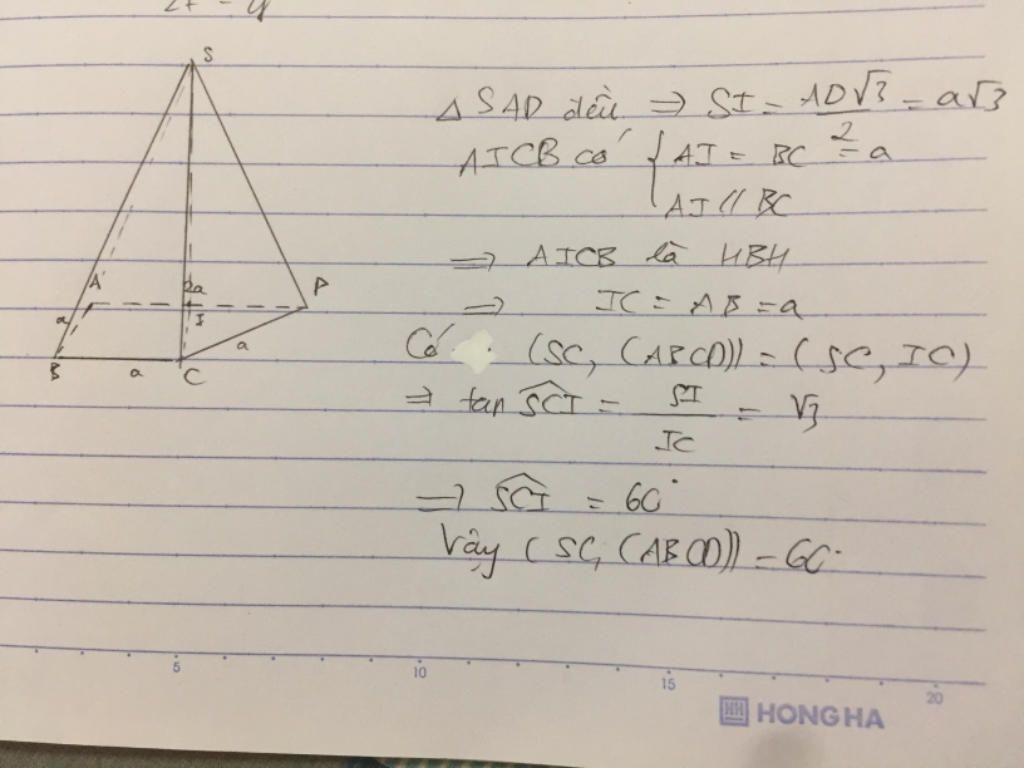 S
A
2a
D
I
a
a
B
a
C
Δ SAD đều ⇒ SI = AD√3/2 = a√3
AICB có { AI = BC = a
AI // BC
⇒ AICB là HBH
⇒ IC = AB = a
Có (SC, (ABCD)) = (SC, IC)
⇒ tan SCI = SI/IC = √3
⇒ SCI = 60°
Vậy (SC, (ABCD)) = 60°
5 10 15 20
HH HONG HA